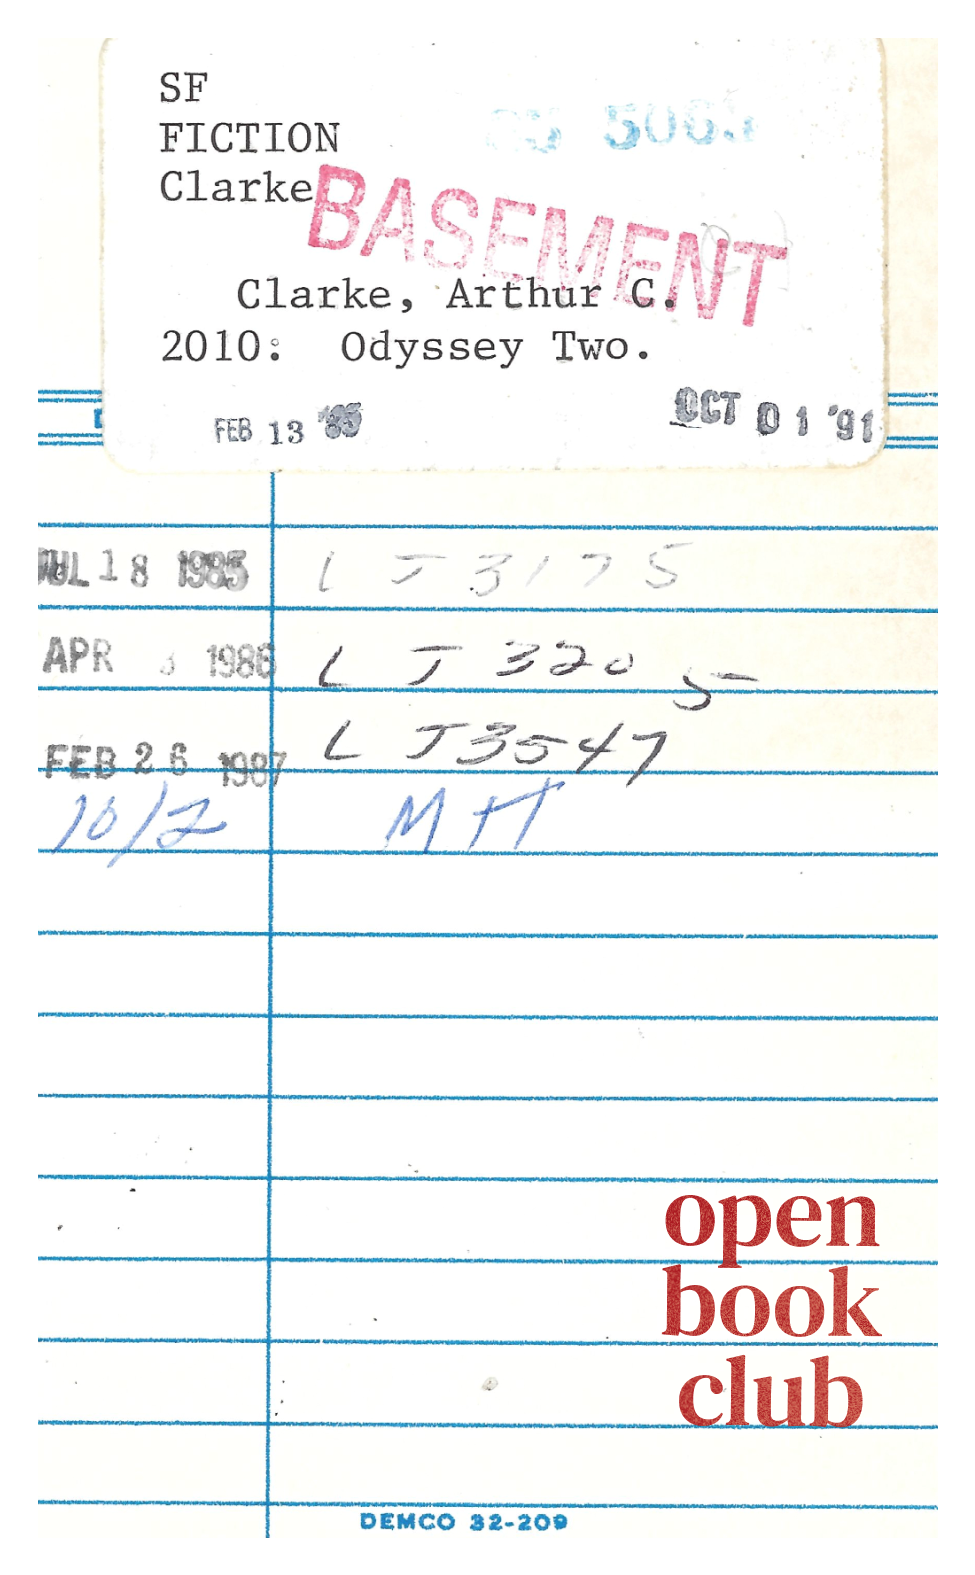 SF
FICTION
Clarke
BASEMENT
Clarke, Arthur C.
2010: Odyssey Two.
FEB 13 '85
OCT 01 '91
JUL 18 1985 L J 3175
APR 1986 L J 3205
FEB 26 1987 L J3547
10/2 MH
open
book
club
DEMCO 32-209